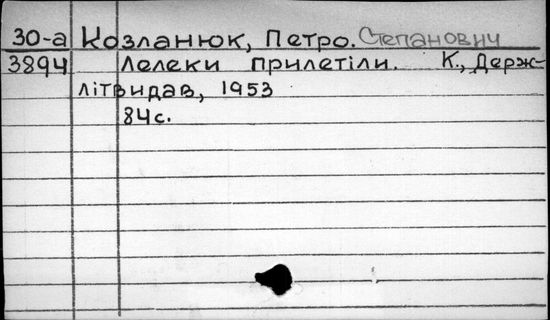 30-а Козланюк, Петро. Степанович
3894 Лелеки прилетіли. К., Держ-
літвидав, 1953
84с.